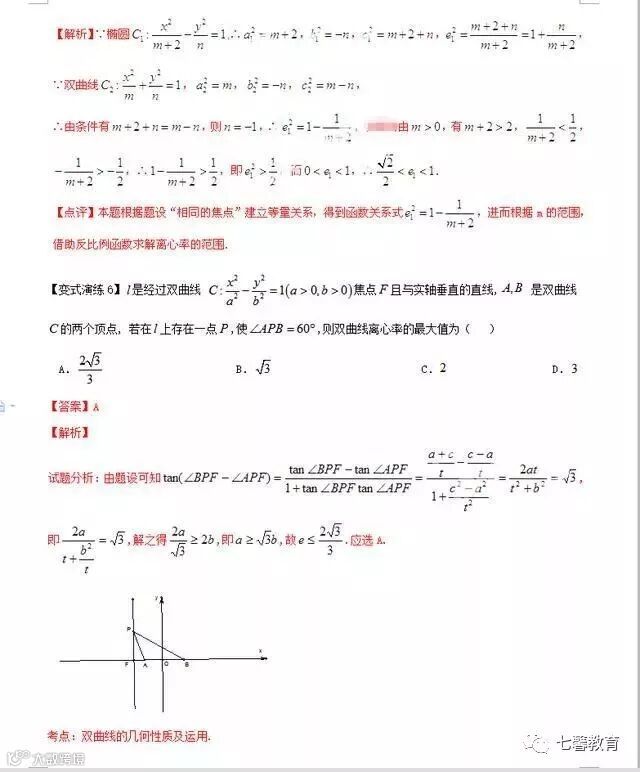 【解析】∵椭圆 C₁: x²/(m+2) - y²/n = 1, ∴ a₁² = m+2, b₁² = -n, c₁² = m+2+n, e₁² = (m+2+n)/(m+2) = 1 + n/(m+2),
∵双曲线 C₂: x²/m + y²/n = 1, a₂² = m, b₂² = -n, c₂² = m-n,
∴由条件有 m+2+n = m-n, 则 n = -1, ∴ e₁² = 1 - 1/(m+2), 由 m > 0, 有 m+2 > 2, 1/(m+2) < 1/2,
-1/(m+2) > -1/2, ∴ 1 - 1/(m+2) > 1/2, 即 e₁² > 1/2, 而 0 < e₁ < 1, ∴ √2/2 < e₁ < 1.
【点评】本题根据题设“相同的焦点”建立等量关系, 得到函数关系式 e₁² = 1 - 1/(m+2), 进而根据 m 的范围,
借助反比例函数求解离心率的范围.
【变式演练6】l 是经过双曲线 C: x²/a² - y²/b² = 1(a > 0, b > 0) 焦点 F 且与实轴垂直的直线, A,B 是双曲线
C 的两个顶点, 若在 l 上存在一点 P, 使 ∠APB = 60°, 则双曲线离心率的最大值为( )
A. 2√3/3 B. √3 C. 2 D. 3
【答案】A
【解析】
试题分析: 由题设可知 tan(∠BPF - ∠APF) = (tan∠BPF - tan∠APF)/(1 + tan∠BPF tan∠APF) = ((a+c)/t - (c-a)/t)/(1 + (c²-a²)/t²) = 2at/(t²+b²) = √3,
即 2a/(t + b²/t) = √3, 解之得 2a/√3 ≥ 2b, 即 a ≥ √3b, 故 e ≤ 2√3/3. 应选 A.
y
P
x
F A O B
考点: 双曲线的几何性质及运用.
七馨教育
大数跨境